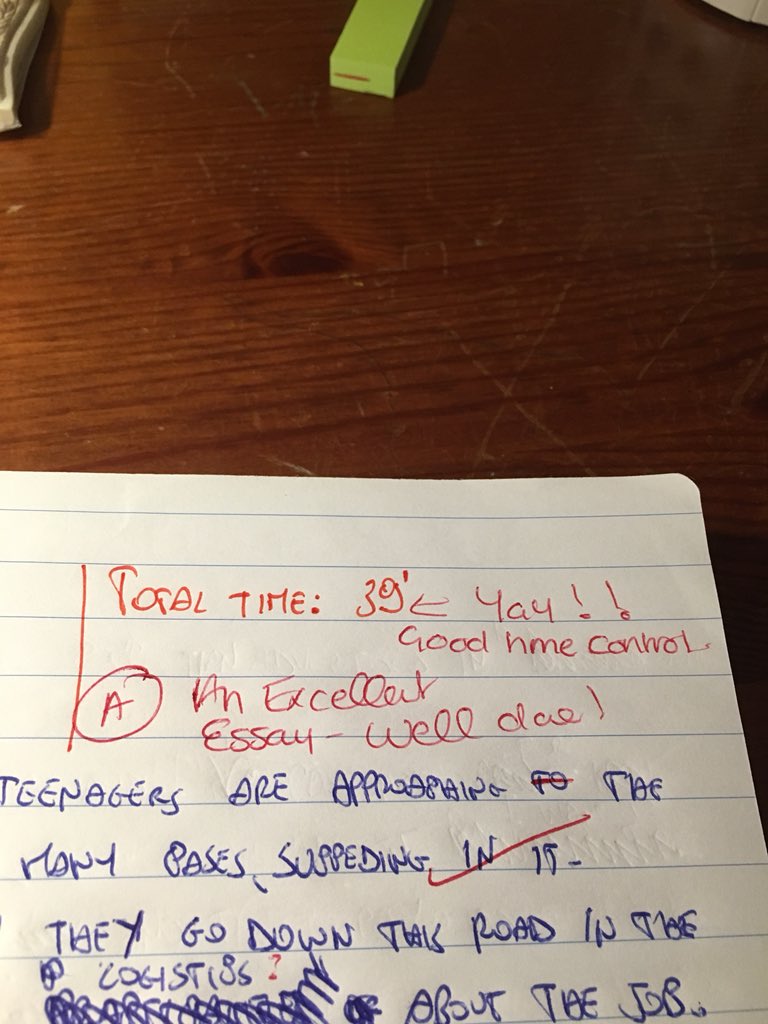 TOTAL TIME: 39' ← Yay!!
Good time control.
A An Excellent
Essay - Well done!
TEENAGERS ARE APPROACHING TO THE
MANY CASES, SUCCEDING IN IT.
THEY GO DOWN THIS ROAD IN THE
LOGISTICS?
OF ABOUT THE JOB.